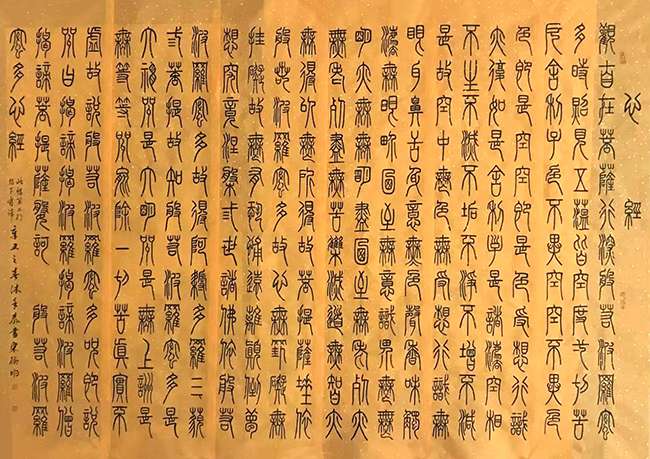 心經
觀自在菩薩行深般若波羅密
多時照見五蘊皆空度一切苦
厄舍利子色不異空空不異色
色即是空空即是色受想行識
亦復如是舍利子是諸法空相
不生不滅不垢不淨不增不減
是故空中無色無受想行識無
眼耳鼻舌身意無色聲香味觸
法無眼界乃至無意識界無無
明亦無無明盡乃至無老死亦
無老死盡無苦集滅道無智亦
無得以無所得故菩提薩埵依
般若波羅密多故心無罣礙無
罣礙故無有恐怖遠離顛倒夢
想究竟涅槃三世諸佛依般若
波羅密多故得阿耨多羅三藐
三菩提故知般若波羅密多是
大神咒是大明咒是無上咒是
無等等咒能除一切苦真實不
虛故說般若波羅密多咒即說
咒曰揭諦揭諦波羅揭諦波羅僧
揭諦菩提薩婆訶 般若波羅
密多心經
辛丑之春沐手恭書